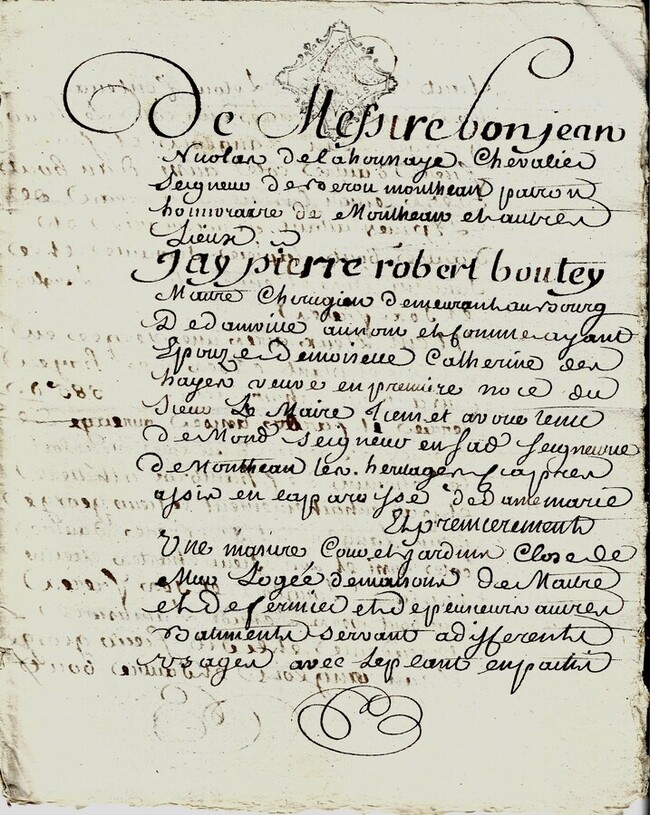 De Messire bon jean
Nicolas de la houssaye Chevalier
Seigneur de montheau patron
honnoraire de Montheau et autres
Lieux
Jay pierre robert boutey
Maitre Chirugien demeurant au bourg
De damville au nom et comme ayant
Epouze Demoiselle Catherine des
hayes veuve en premiere noce du
Sieur Le Maire Tiens et avoue tenir
De Mond Seigneur en sad Seigneurie
De Montheau les heritages cy apres
assis en la paroisse de damemarie
Et premierement
Une masure Cour et jardins Close de
Mur Logée de maisons de Maitre
et De fermier et de plusieurs autres
Batiments servant a differents
Usages avec le plant en partie